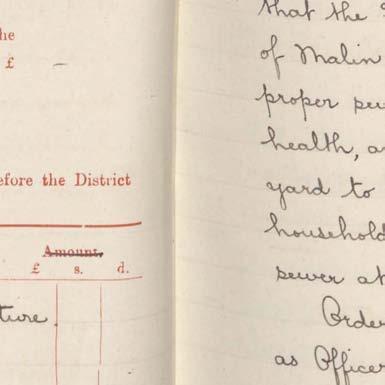 he
£ —
efore the District
Amount.
£ s. d.
ture
that the
of Malin
proper
health, a
yard to
household
sewer at
Order
as Officer